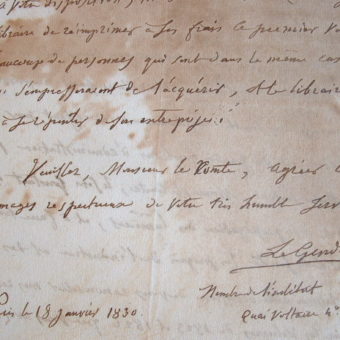 à votre disposition,
libraire de réimprimer à ses frais le premier vo
beaucoup de personnes qui sont dans le même cas
s'empresseraient de l'acquérir, et le libraire
à se repentir de son entreprise.
Veuillez, Monsieur le Comte, agréer l
mages respectueux de votre très humble serv
LeGend
Membre de l'institut
quai Voltaire n°
ris le 18 janvier 1830.